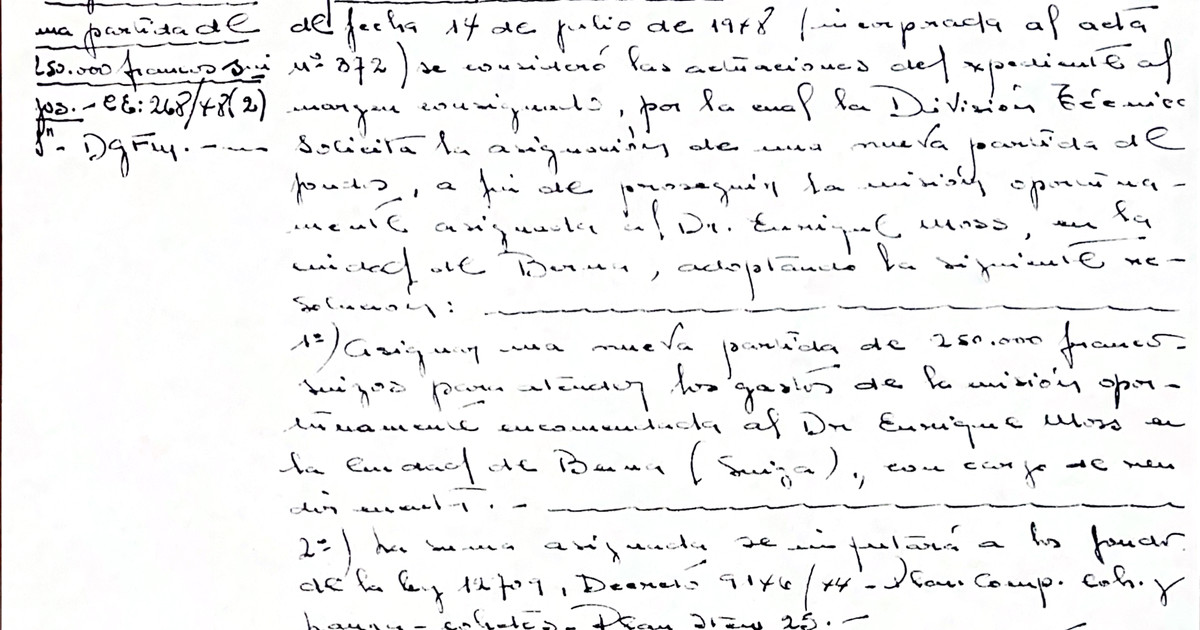 una partida de
250.000 francos sui
zos.- CE: 268/48(2)
fn - DgFm. -
de fecha 14 de julio de 1948 (incorporada al acta
Nº 372) se consideró las actuaciones del expediente al
margen consignado, por la cual la División Técnica
solicita la asignación de una nueva partida de
fondos, a fin de proseguir la misión oportuna-
mente asignada al Dr. Enrique Moss, en la
ciudad de Berna, adoptando la siguiente re-
solución:
1º) Asignar una nueva partida de 250.000 francos
suizos para atender los gastos de la misión opor-
tunamente encomendada al Dr Enrique Moss en
la ciudad de Berna (Suiza)., con cargo de ren
dir cuenta. -
2º) La suma asignada se imputará a los fondos
de la ley 12709, Decreto 9146/44 - Plan. Comp. coh. y
- cohetes - Plan Item 25. -